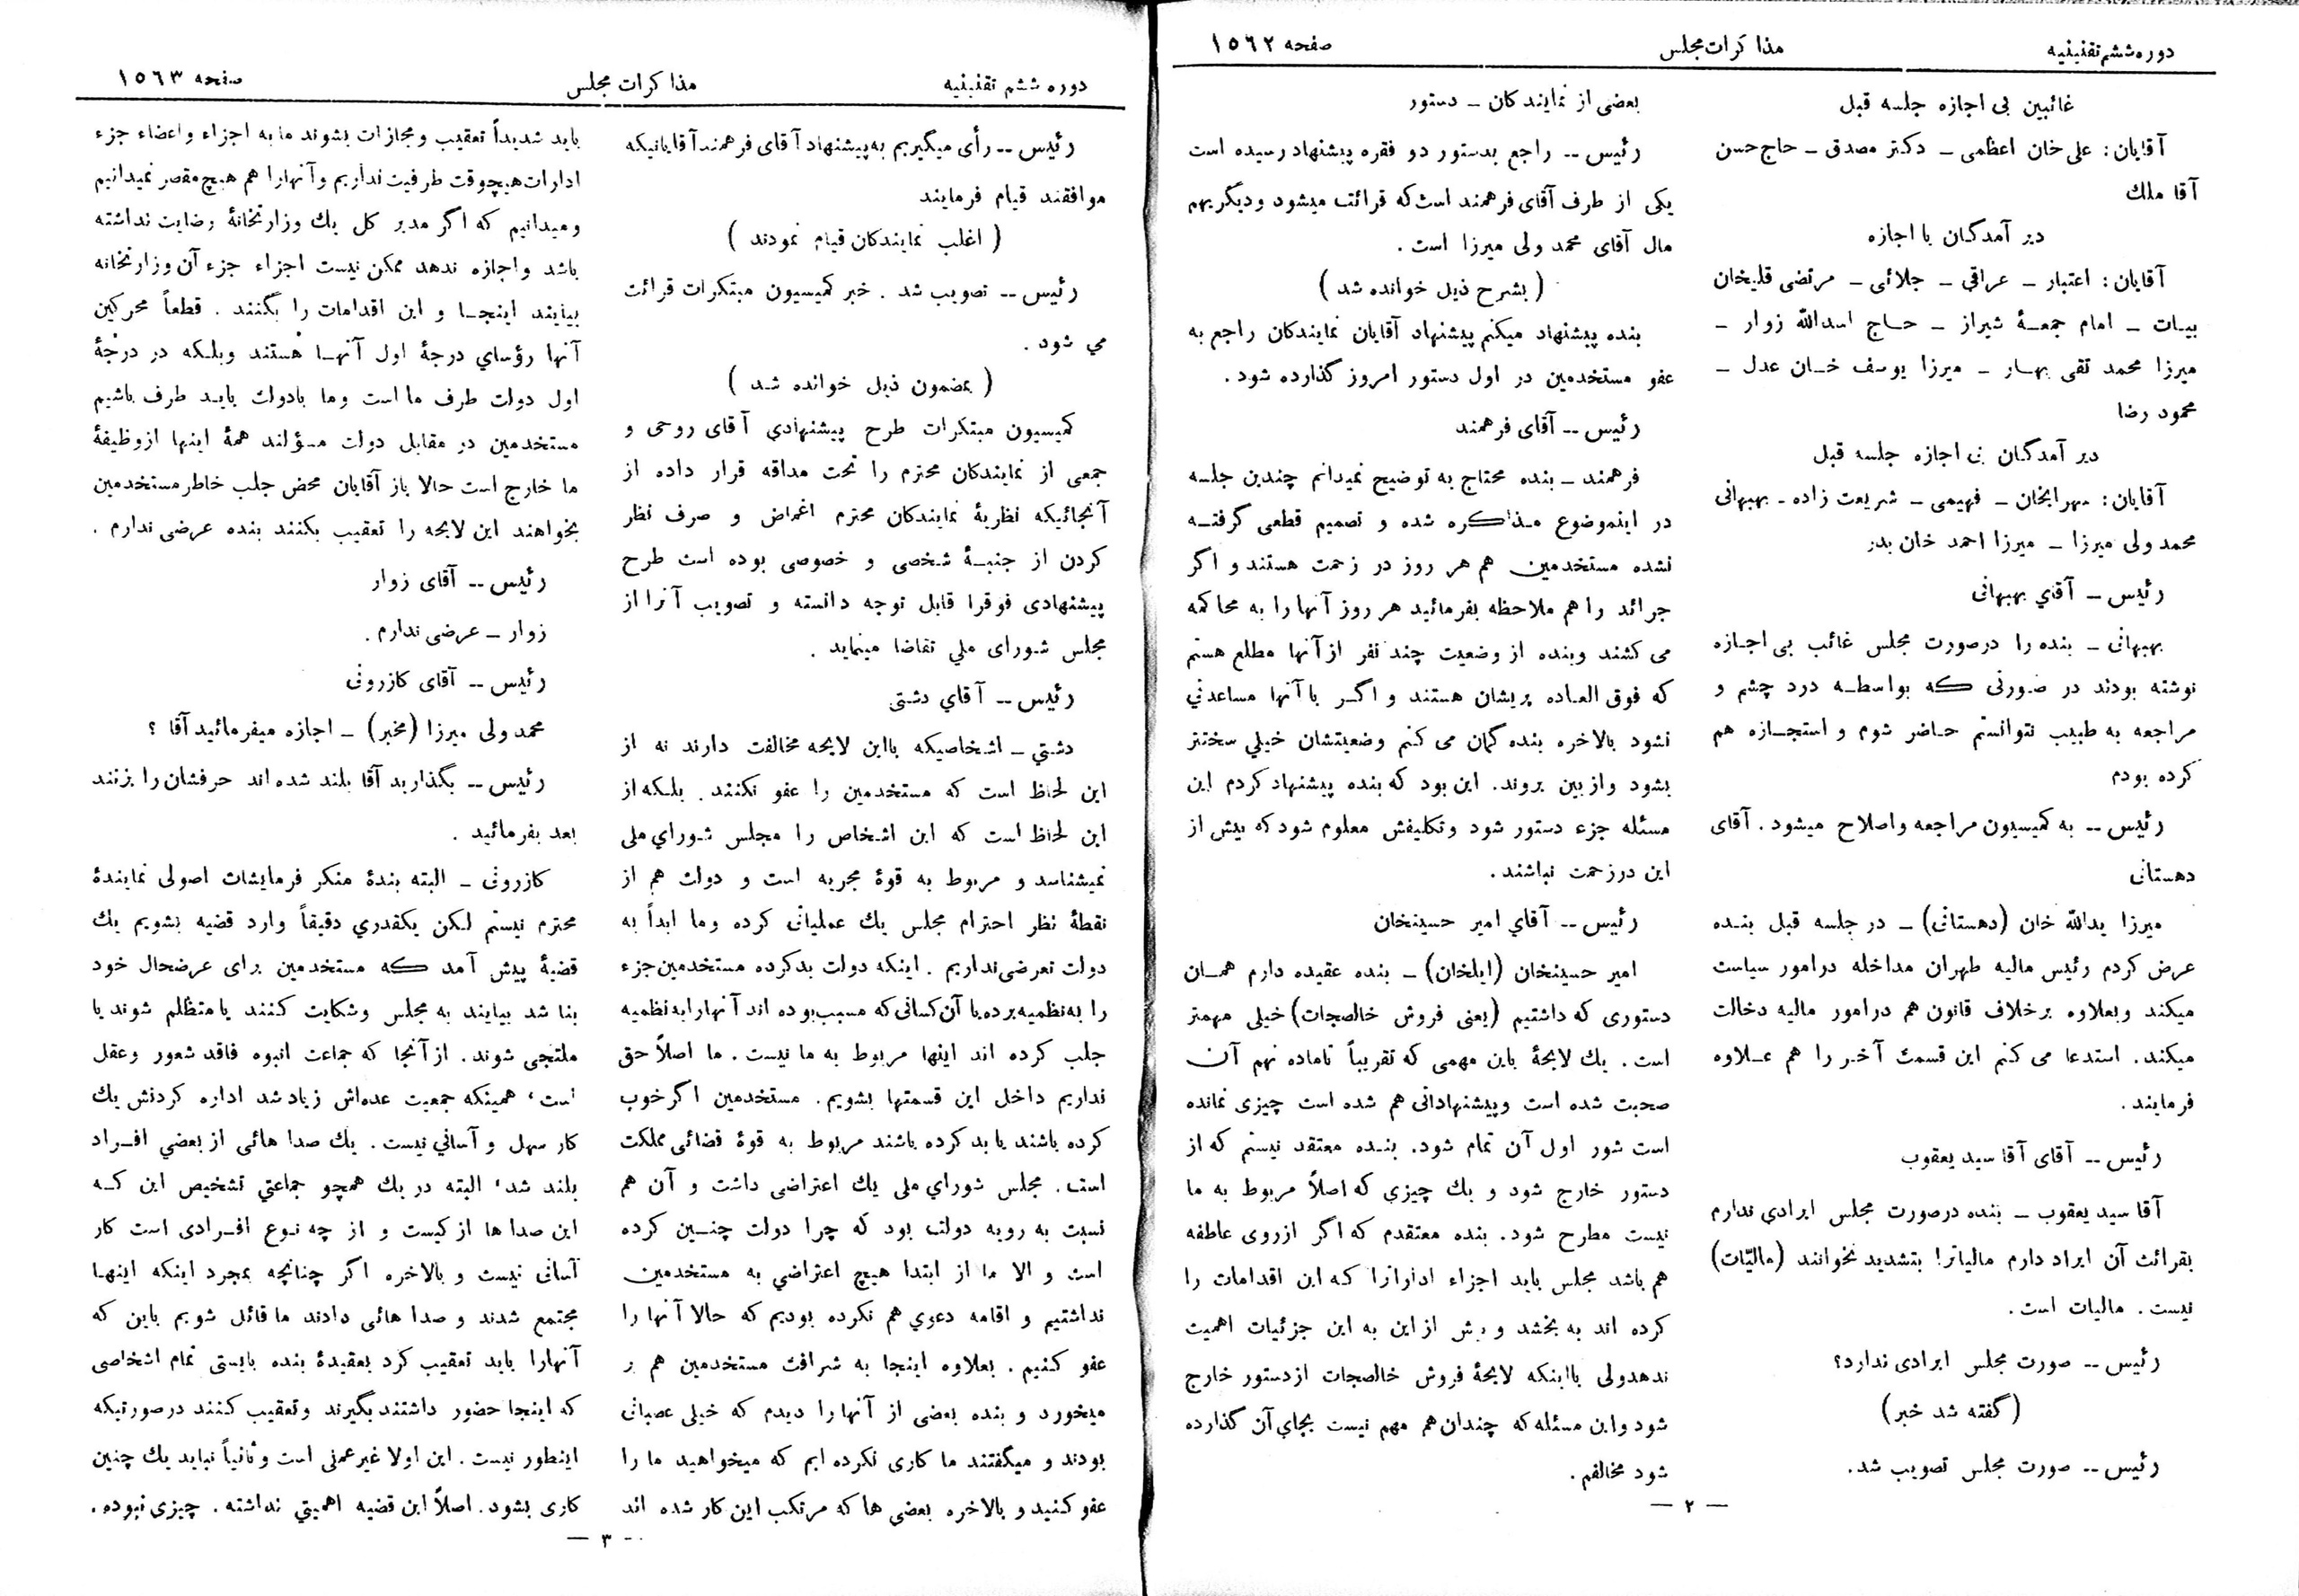 دوره ششم تقنینیه
مذاکرات مجلس
صفحه ۱۵٦۲
غائبین بی اجازه جلسه قبل
آقایان: علی خان اعظمی ـ دکتر مصدق ـ حاج حسن
آقا ملك
دیر آمدگان با اجازه
آقایان: اعتبار ـ عراقی ـ جلائی ـ مرتضی قلیخان
بیات ـ امام جمعهٔ شیراز ـ حاج اسدالله زوار ـ
میرزا محمد تقی بهار ـ میرزا یوسف خان عدل ـ
محمود رضا
دیر آمدگان بی اجازه جلسه قبل
آقایان: سهرابخان ـ فهیمی ـ شریعت زاده ـ بهبهانی
محمد ولی میرزا ـ میرزا احمد خان بدر
رئیس ـ آقاي بهبهانی
بهبهانی ـ بنده را درصورت مجلس غائب بی اجازه
نوشته بودند در صورتی که بواسطه درد چشم و
مراجعه به طبیب نتوانستم حاضر شوم و استجازه هم
کرده بودم
رئیس -- به کمیسیون مراجعه واصلاح میشود . آقای
دهستانی
میرزا یدالله خان (دهستانی) ـ در جلسه قبل بنده
عرض کردم رئیس مالیه طهران مداخله درامور سیاست
میکند وبعلاوه برخلاف قانون هم درامور مالیه دخالت
میکند. استدعا می کنم این قسمت آخر را هم علاوه
فرمایند.
رئیس -- آقای آقا سید یعقوب
آقا سید یعقوب ـ بنده درصورت مجلس ایرادي ندارم
بقرائت آن ایراد دارم مالیاترا بتشدید نخوانند (مالیّات)
نیست . مالیات است.
رئیس -- صورت مجلس ایرادی ندارد؟
(گفته شد خیر)
رئیس -- صورت مجلس تصویب شد.
بعضی از نمایندگان ـ دستور
رئیس -- راجع بدستور دو فقره پیشنهاد رسیده است
یکی از طرف آقای فرهمند است که قرائت میشود ودیگر بهم
مال آقای محمد ولی میرزا است .
(بشرح ذیل خوانده شد)
بنده پیشنهاد میکنم پیشنهاد آقایان نمایندگان راجع به
عفو مستخدمین در اول دستور امروز گذارده شود.
رئیس -- آقای فرهمند
فرهمند ـ بنده محتاج به توضیح نمیدانم چندین جلسه
در اینموضوع مذاکره شده و تصمیم قطعی گرفته
نشده مستخدمین هم هر روز در زحمت هستند و اگر
جرائد را هم ملاحظه بفرمائید هر روز آنها را به محاکمه
می کشند وبنده از وضعیت چند نفر از آنها مطلع هستم
که فوق العاده پریشان هستند و اگر با آنها مساعدتي
نشود بالاخره بنده گمان می کنم وضعیتشان خیلي سختتر
بشود واز بین بروند. این بود که بنده پیشنهاد کردم این
مسئله جزء دستور شود وتکلیفش معلوم شود که بیش از
این درزحمت نباشند.
رئیس -- آقاي امیر حسینخان
امیر حسینخان (ایلخان) ـ بنده عقیده دارم همان
دستوری که داشتیم (یعنی فروش خالصجات) خیلی مهمتر
است . یك لایحهٔ باین مهمی که تقریباً تاماده نهم آن
صحبت شده است وپیشنهاداتی هم شده است چیزی نمانده
است شور اول آن تمام شود. بنده معتقد نیستم که از
دستور خارج شود و یك چیزي که اصلاً مربوط به ما
نیست مطرح شود. بنده معتقدم که اگر ازروی عاطفه
هم باشد مجلس باید اجزاء اداراترا که این اقدامات را
کرده اند به بخشد و بیش از این به این جزئیات اهمیت
ندهدولی بااینکه لایحهٔ فروش خالصجات ازدستور خارج
شود واین مسئله که چندان هم مهم نیست بجاي آن گذارده
شود مخالفم.
— ۲ —
دوره ششم تقنینیه
مذاکرات مجلس
صفحه ۱۵٦۳
رئیس -- رأی میگیریم به پیشنهاد آقای فرهمند آقایانیکه
موافقند قیام فرمایند
(اغلب نمایندگان قیام نمودند)
رئیس -- تصویب شد . خبر کمیسیون مبتکرات قرائت
مي شود .
(بمضمون ذیل خوانده شد)
کمیسیون مبتکرات طرح پیشنهادي آقای روحی و
جمعی از نمایندگان محترم را تحت مداقه قرار داده از
آنجائیکه نظریهٔ نمایندگان محترم اغماض و صرف نظر
کردن از جنبهٔ شخصی و خصوصی بوده است طرح
پیشنهادی فوقرا قابل توجه دانسته و تصویب آنرا از
مجلس شورای ملي تقاضا مینماید .
رئیس -- آقاي دشتی
دشتي ـ اشخاصیکه بااین لایحه مخالفت دارند نه از
این لحاظ است که مستخدمین را عفو نکنند. بلکه از
این لحاظ است که این اشخاص را مجلس شوراي ملی
نمیشناسد و مربوط به قوهٔ مجریه است و دولت هم از
نقطهٔ نظر احترام مجلس یك عملیاتی کرده وما ابداً به
دولت تعرضی نداریم . اینکه دولت بدکرده مستخدمین جزء
را به نظمیه برده یا آن کسانی که مسبب بوده اند آنهارا به نظمیه
جلب کرده اند اینها مربوط به ما نیست . ما اصلاً حق
نداریم داخل این قسمتها بشویم. مستخدمین اگر خوب
کرده باشند یا بد کرده باشند مربوط به قوهٔ قضائی مملکت
است. مجلس شوراي ملی یك اعتراضی داشت و آن هم
نسبت به رویه دولت بود که چرا دولت چنین کرده
است و الا ما از ابتدا هیچ اعتراضي به مستخدمین
نداشتیم و اقامه دعوي هم نکرده بودیم که حالا آنها را
عفو کنیم. بعلاوه اینجا به شرافت مستخدمین هم بر
میخورد و بنده بعضی از آنها را دیدم که خیلی عصبانی
بودند و میگفتند ما کاری نکرده ایم که میخواهید ما را
عفو کنید و بالاخره بعضی ها که مرتکب این کار شده اند
باید شدیداً تعقیب ومجازات بشوند ما به اجزاء واعضاء جزء
ادارات هیچوقت طرفیت نداریم وآنهارا هم هیچ مقصر نمیدانیم
ومیدانیم که اگر مدیر کل یك وزارتخانهٔ رضایت نداشته
باشد واجازه ندهد ممکن نیست اجزاء جزء آن وزارتخانه
بیایند اینجا و این اقدامات را بکنند . قطعاً محرکین
آنها رؤسای درجهٔ اول آنها هستند وبلکه در درجهٔ
اول دولت طرف ما است وما بادولت باید طرف باشیم
مستخدمین در مقابل دولت مسؤلند همهٔ اینها ازوظیفهٔ
ما خارج است حالا باز آقایان محض جلب خاطر مستخدمین
بخواهند این لایحه را تعقیب بکنند بنده عرضی ندارم .
رئیس -- آقای زوار
زوار ـ عرضی ندارم.
رئیس -- آقای کازرونی
محمد ولی میرزا (مخبر) ـ اجازه میفرمائید آقا ؟
رئیس -- بگذارید آقا بلند شده اند حرفشان را بزنند
بعد بفرمائید .
کازرونی ـ البته بندهٔ منکر فرمایشات اصولی نمایندهٔ
محترم نیستم لکن یکقدري دقیقاً وارد قضیه بشویم یك
قضیهٔ پیش آمد که مستخدمین برای عرضحال خود
بنا شد بیایند به مجلس وشکایت کنند یا متظلم شوند یا
ملتجی شوند. از آنجا که جماعت انبوه فاقد شعور وعقل
است، همینکه جمعیت عده‌اش زیاد شد اداره کردنش یك
کار سهل و آسانی نیست. یك صدا هائی از بعضی افراد
بلند شد، البته در یك همچو جماعتي تشخیص این که
این صدا ها از کیست و از چه نوع افرادی است کار
آسانی نیست و بالاخره اگر چنانچه بمجرد اینکه اینها
مجتمع شدند و صدا هائی دادند ما قائل شویم باین که
آنهارا باید تعقیب کرد بعقیدهٔ بنده بایستی تمام اشخاصی
که اینجا حضور داشتند بگیرند وتعقیب کنند درصورتیکه
اینطور نیست. این اولا غیر عملی است وثانیاً نباید یك چنین
کاری بشود. اصلاً این قضیه اهمیتي نداشته. چیزی نبوده.
— ۳ —